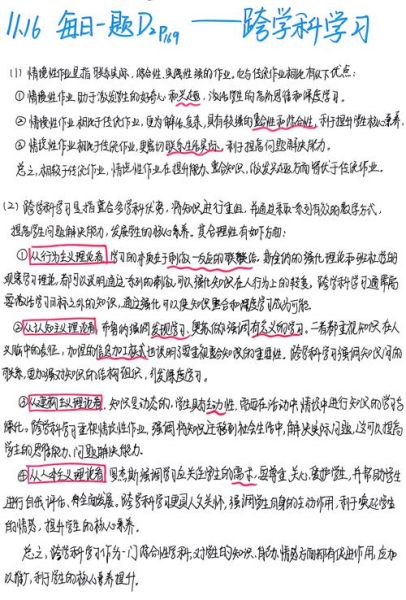 11.16 每日一题D2P169 ——跨学科学习
(1) 情境性作业是指联系实际，综合性、实践性强的作业。它与传统作业相比有以下优点：
① 情境性作业助于激发学生的好奇心和兴趣，
② 情境性作业相比于传统作业，更为解放复杂，具有较强的整合性和综合性，利于提升学生核心素养。
③ 情境性作业相比于传统作业，更密切联系生活实际，利于提高问题解决能力。
总之，相较于传统作业，情境性作业在提升能力、整合知识、激发兴趣方面等优于传统作业。
(2) 跨学科学习是指整合多学科优素，将知识进行重组，并通过采取一系列有效的教学方式，
提高学生问题解决能力，发展学生的核心素养。其合理性有如下方面：
① 从行为主义理论看 学习的本质在于刺激一反应的联
观察学习理论，都可以说明通过一系列的刺激，可以强化知识在人行为上的转变。跨学科学习通常需
要高于学习目标之外的知识，通过强化可以使知识整合和深度学习成为可能。
② 从认知主义理论看 布鲁纳强调发现学习，奥苏伯尔强调有意义的学习。二者都重视知识在人
大脑中的表征，加涅的信息加工模式也说明了要重视整合知识的重要性。跨学科学习强调知识间的
联系，更加强调知识的结构组织，引发深度学习。
③ 从建构主义理论看，知识是动态的，学生具有主动性，需要在活动中、情境中进行知识的学习与
强化。跨学科学习重视情境性作业，强调将知识迁移到社会生活中，解决实际问题，这可以提高
学生的思维能力、问题解决能力。
④ 从人本主义理论看 罗杰斯强调学习应关注学生的需求，要尊重、关心、爱护学生，并帮助学生
进行自我评估、有全面发展。跨学科学习更具人文关怀，强调学生自身的主动作用，利于唤起学生
的情感，提升学生的核心素养。
总之，跨学科学习作为一门综合性学科，对学生的知识、能力、情感方面都有促进作用，应加
以推广，利于学生的核心素养提升。